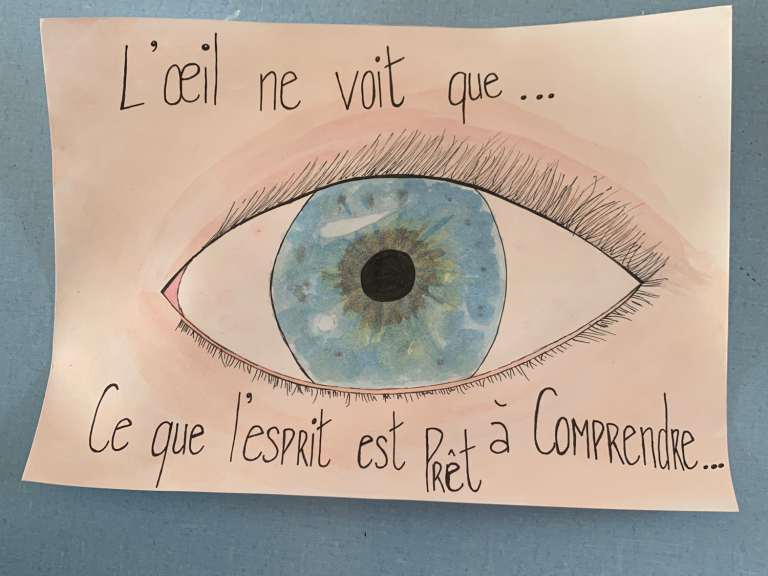 L'œil ne voit que...
Ce que l'esprit est Prêt à Comprendre...